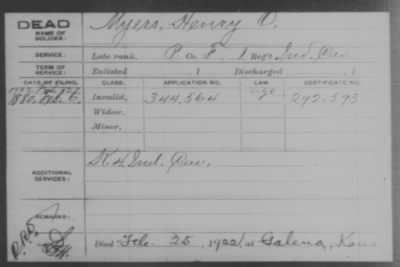 DEAD
NAME OF SOLDIER:
Myers, Henry O.
SERVICE:
Late rank, P Co. F, 1 Reg't Ind. Cav.
TERM OF SERVICE:
Enlisted 1 Discharged , 1
DATE OF FILING. CLASS. APPLICATION NO. LAW. CERTIFICATE NO.
1880, Feb. 6. Invalid, 344.564 292.593
Widow,
Minor,
ADDITIONAL SERVICES:
K 4 Ind. Cav.
REMARKS:
Died Feb. 25, 1922, at Galena, Kans